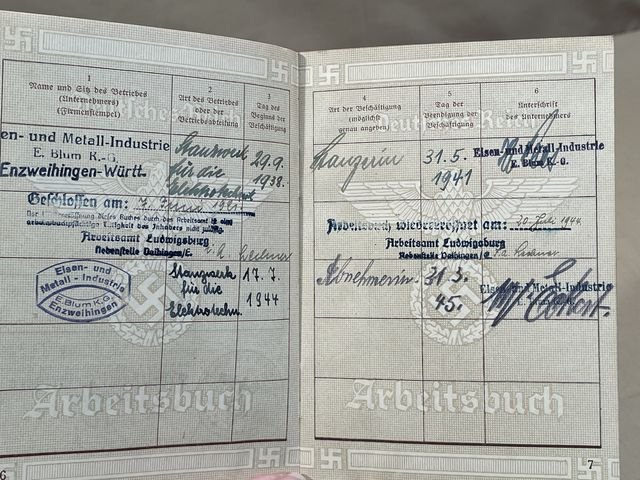 1
Name und Sitz des Betriebes
(Unternehmers)
(Firmenstempel)
2
Art des Betriebes
oder der
Betriebsabteilung
3
Tag des
Beginns der
Beschäftigung
Eisen- und Metall-Industrie
E. Blum K.-G.
Enzweihingen-Württ.
Stanzwerk
für die
Elektrotechn
29.9.
1938.
Geschlossen am: 7. Juni 1941
Arbeitsamt Ludwigsburg
Nebenstelle Vaihingen/E.
i.A.
Eisen- und
Metall-Industrie
E. Blum K.G.
Enzweihingen
Stanzwerk
für die
Elektrotechn.
17.7.
1944
Arbeitsbuch
6
4
Art der Beschäftigung
(möglichst
genau angeben)
5
Tag der
Beendigung der
Beschäftigung
6
Unterschrift
des Unternehmers
Deutsches Reich
Stanzerin
31.5.
1941
Eisen- und Metall-Industrie
E. Blum K.-G.
Arbeitsbuch wiedereröffnet am: 20. Juli 1944
Arbeitsamt Ludwigsburg
Nebenstelle Vaihingen/E.
Abnehmerin
31.3.
45.
Eisen- und Metall-Industrie
Arbeitsbuch
7